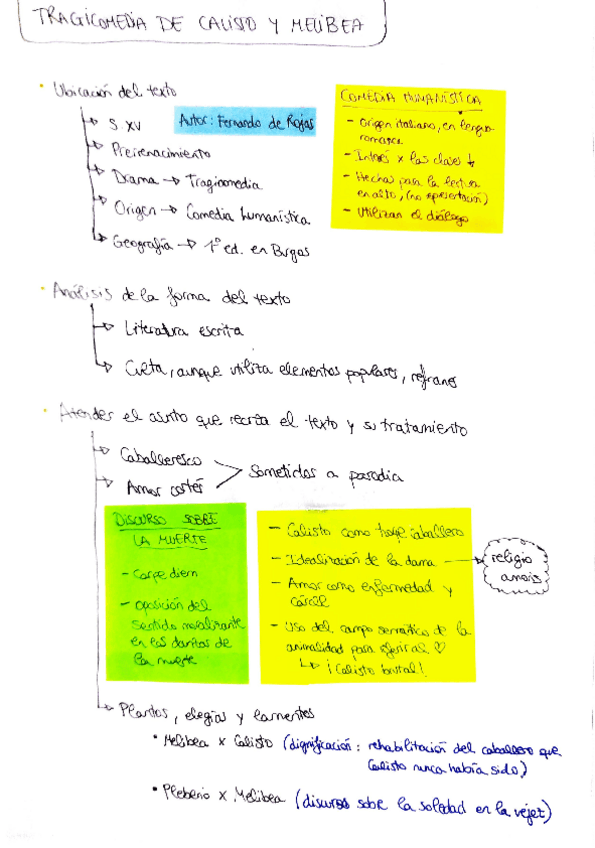 TRAGICOMEDIA DE CALISTO Y MELIBEA
• Ubicación del texto
S. XV
Autor: Fernando de Rojas
Prerrenacimiento
Drama → Tragicomedia
Origen → Comedia humanística
Geografía → 1ª ed. en Burgos
COMEDIA HUMANÍSTICA
- Origen italiano, en lengua
romance
- Interés x las clases ↓
- Hechas para la lectura
en alto, (no representación)
- Utilizan el diálogo
• Análisis de la forma del texto
Literatura escrita
Culta, aunque utiliza elementos populares, refranes
• Atender el asunto que recrea el texto y su tratamiento
Caballeresco
Amor cortés
Sometidos a parodia
DISCURSO SOBRE
LA MUERTE
- Carpe diem
- oposición del
sentido moralizante
en las danzas de
la muerte
- Calisto como caballero
- Idealización de la dama → religio
amoris
- Amor como enfermedad y
cárcel
- Uso del campo semántico de la
animalidad para referirse al ♡
↳ ¡Calisto brutal!
Plantos, elegías y lamentos
• Melibea x Calisto (dignificación: rehabilitación del caballero que
Calisto nunca había sido)
• Pleberio x Melibea (discurso sobre la soledad en la vejez)